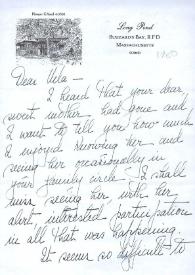 Long Pond
Buzzards Bay, R.F.D
Massachusetts
Dear Vela —
I heard that your dear
sweet mother had gone and
I want to tell you how much
I enjoyed knowing her and
seeing her occasionally in
your family circle — I shall
miss seeing her with her
alert, interested participation
in all that was happening.
It seems so difficult to